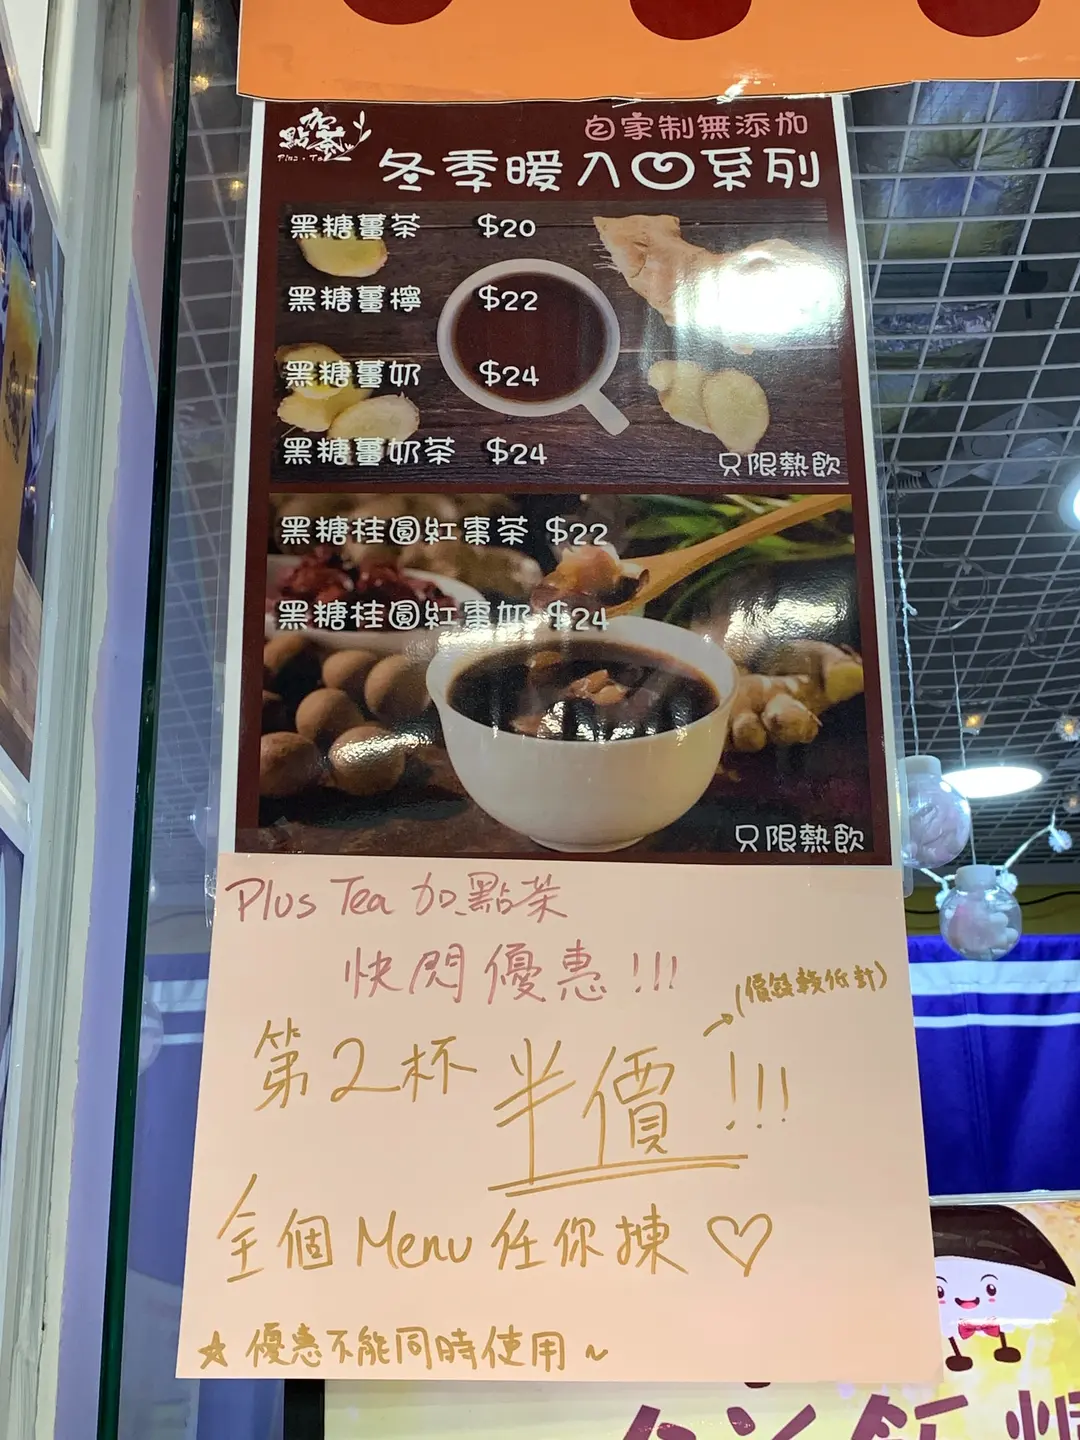 加
點茶
Plus·Tea
自家制無添加
冬季暖入心系列
黑糖薑茶 $20
黑糖薑檸 $22
黑糖薑奶 $24
黑糖薑奶茶 $24
只限熱飲
黑糖桂圓紅棗茶 $22
黑糖桂圓紅棗奶 $24
只限熱飲
Plus Tea 加點茶
快閃優惠!!!
(價錢較低計)
第2杯半價!!!
全個Menu任你揀♡
☆優惠不能同時使用~